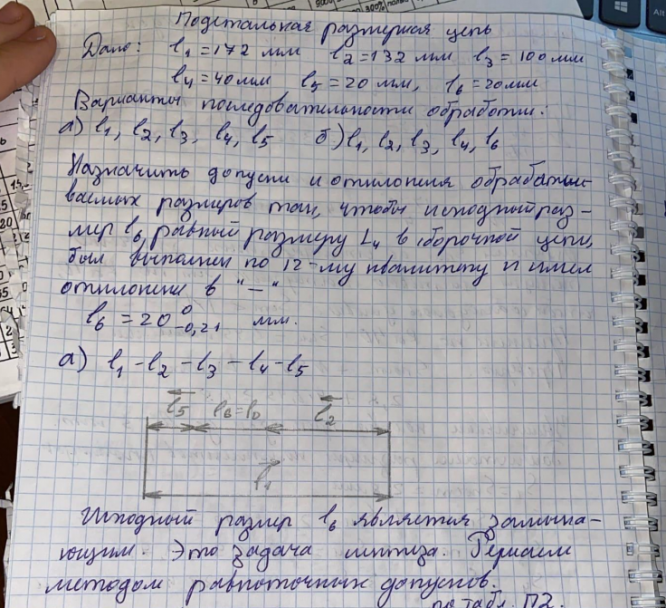 Подетальная размерная цепь
Дано: l1 = 172 мм l2 = 132 мм l3 = 100 мм
l4 = 40 мм l5 = 20 мм, l6 = 20 мм
Варианты последовательности обработки:
а) l1, l2, l3, l4, l5 б) l1, l2, l3, l4, l6
Назначить допуски и отклонения обрабаты-
ваемых размеров так, чтобы исходный раз-
мер l6, равный размеру L4 в сборочной цепи,
был выполнен по 12-му квалитету и имел
отклонение в "—"
l6 = 20 0 -0,21 мм.
а) l1 - l2 - l3 - l4 - l5
l5 l6 = l0 l2
l1
Исходный размер l6 является замыка-
ющим. Это задача синтеза. Решаем
методом равноточных допусков.
по табл. П2.